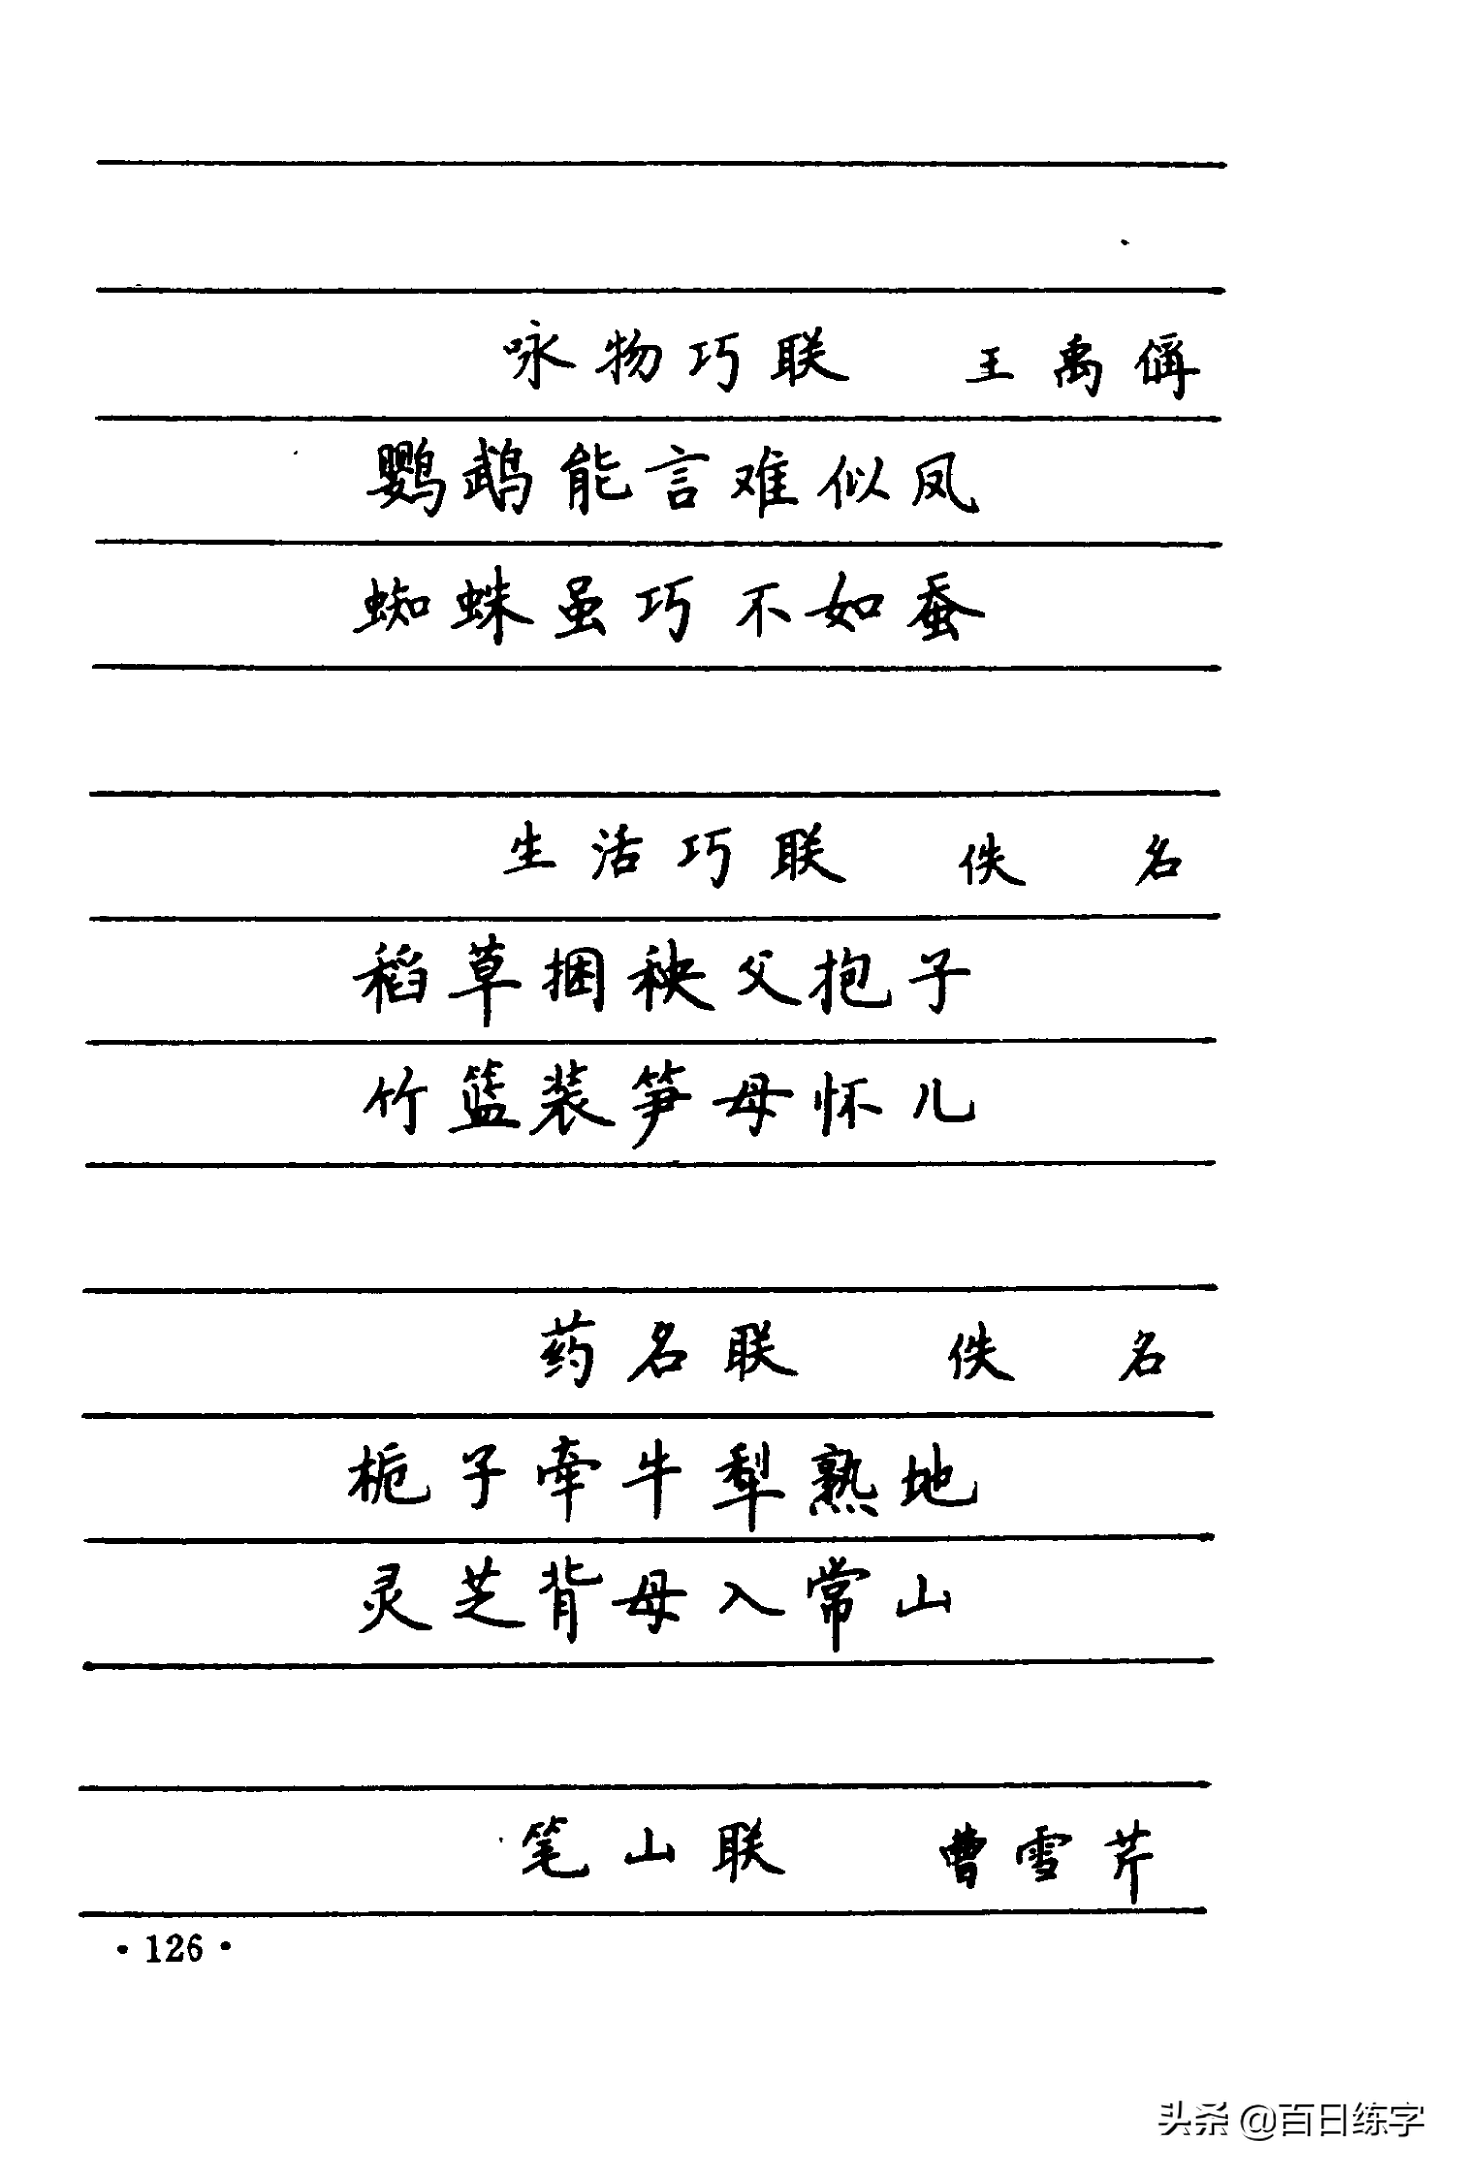 咏物巧联 王禹偁
鹦鹉能言难似凤
蜘蛛虽巧不如蚕
生活巧联 佚名
稻草捆秧父抱子
竹篮装笋母怀儿
药名联 佚名
栀子牵牛犁熟地
灵芝背母入常山
笔山联 曹雪芹
·126·
头条 @百日练字